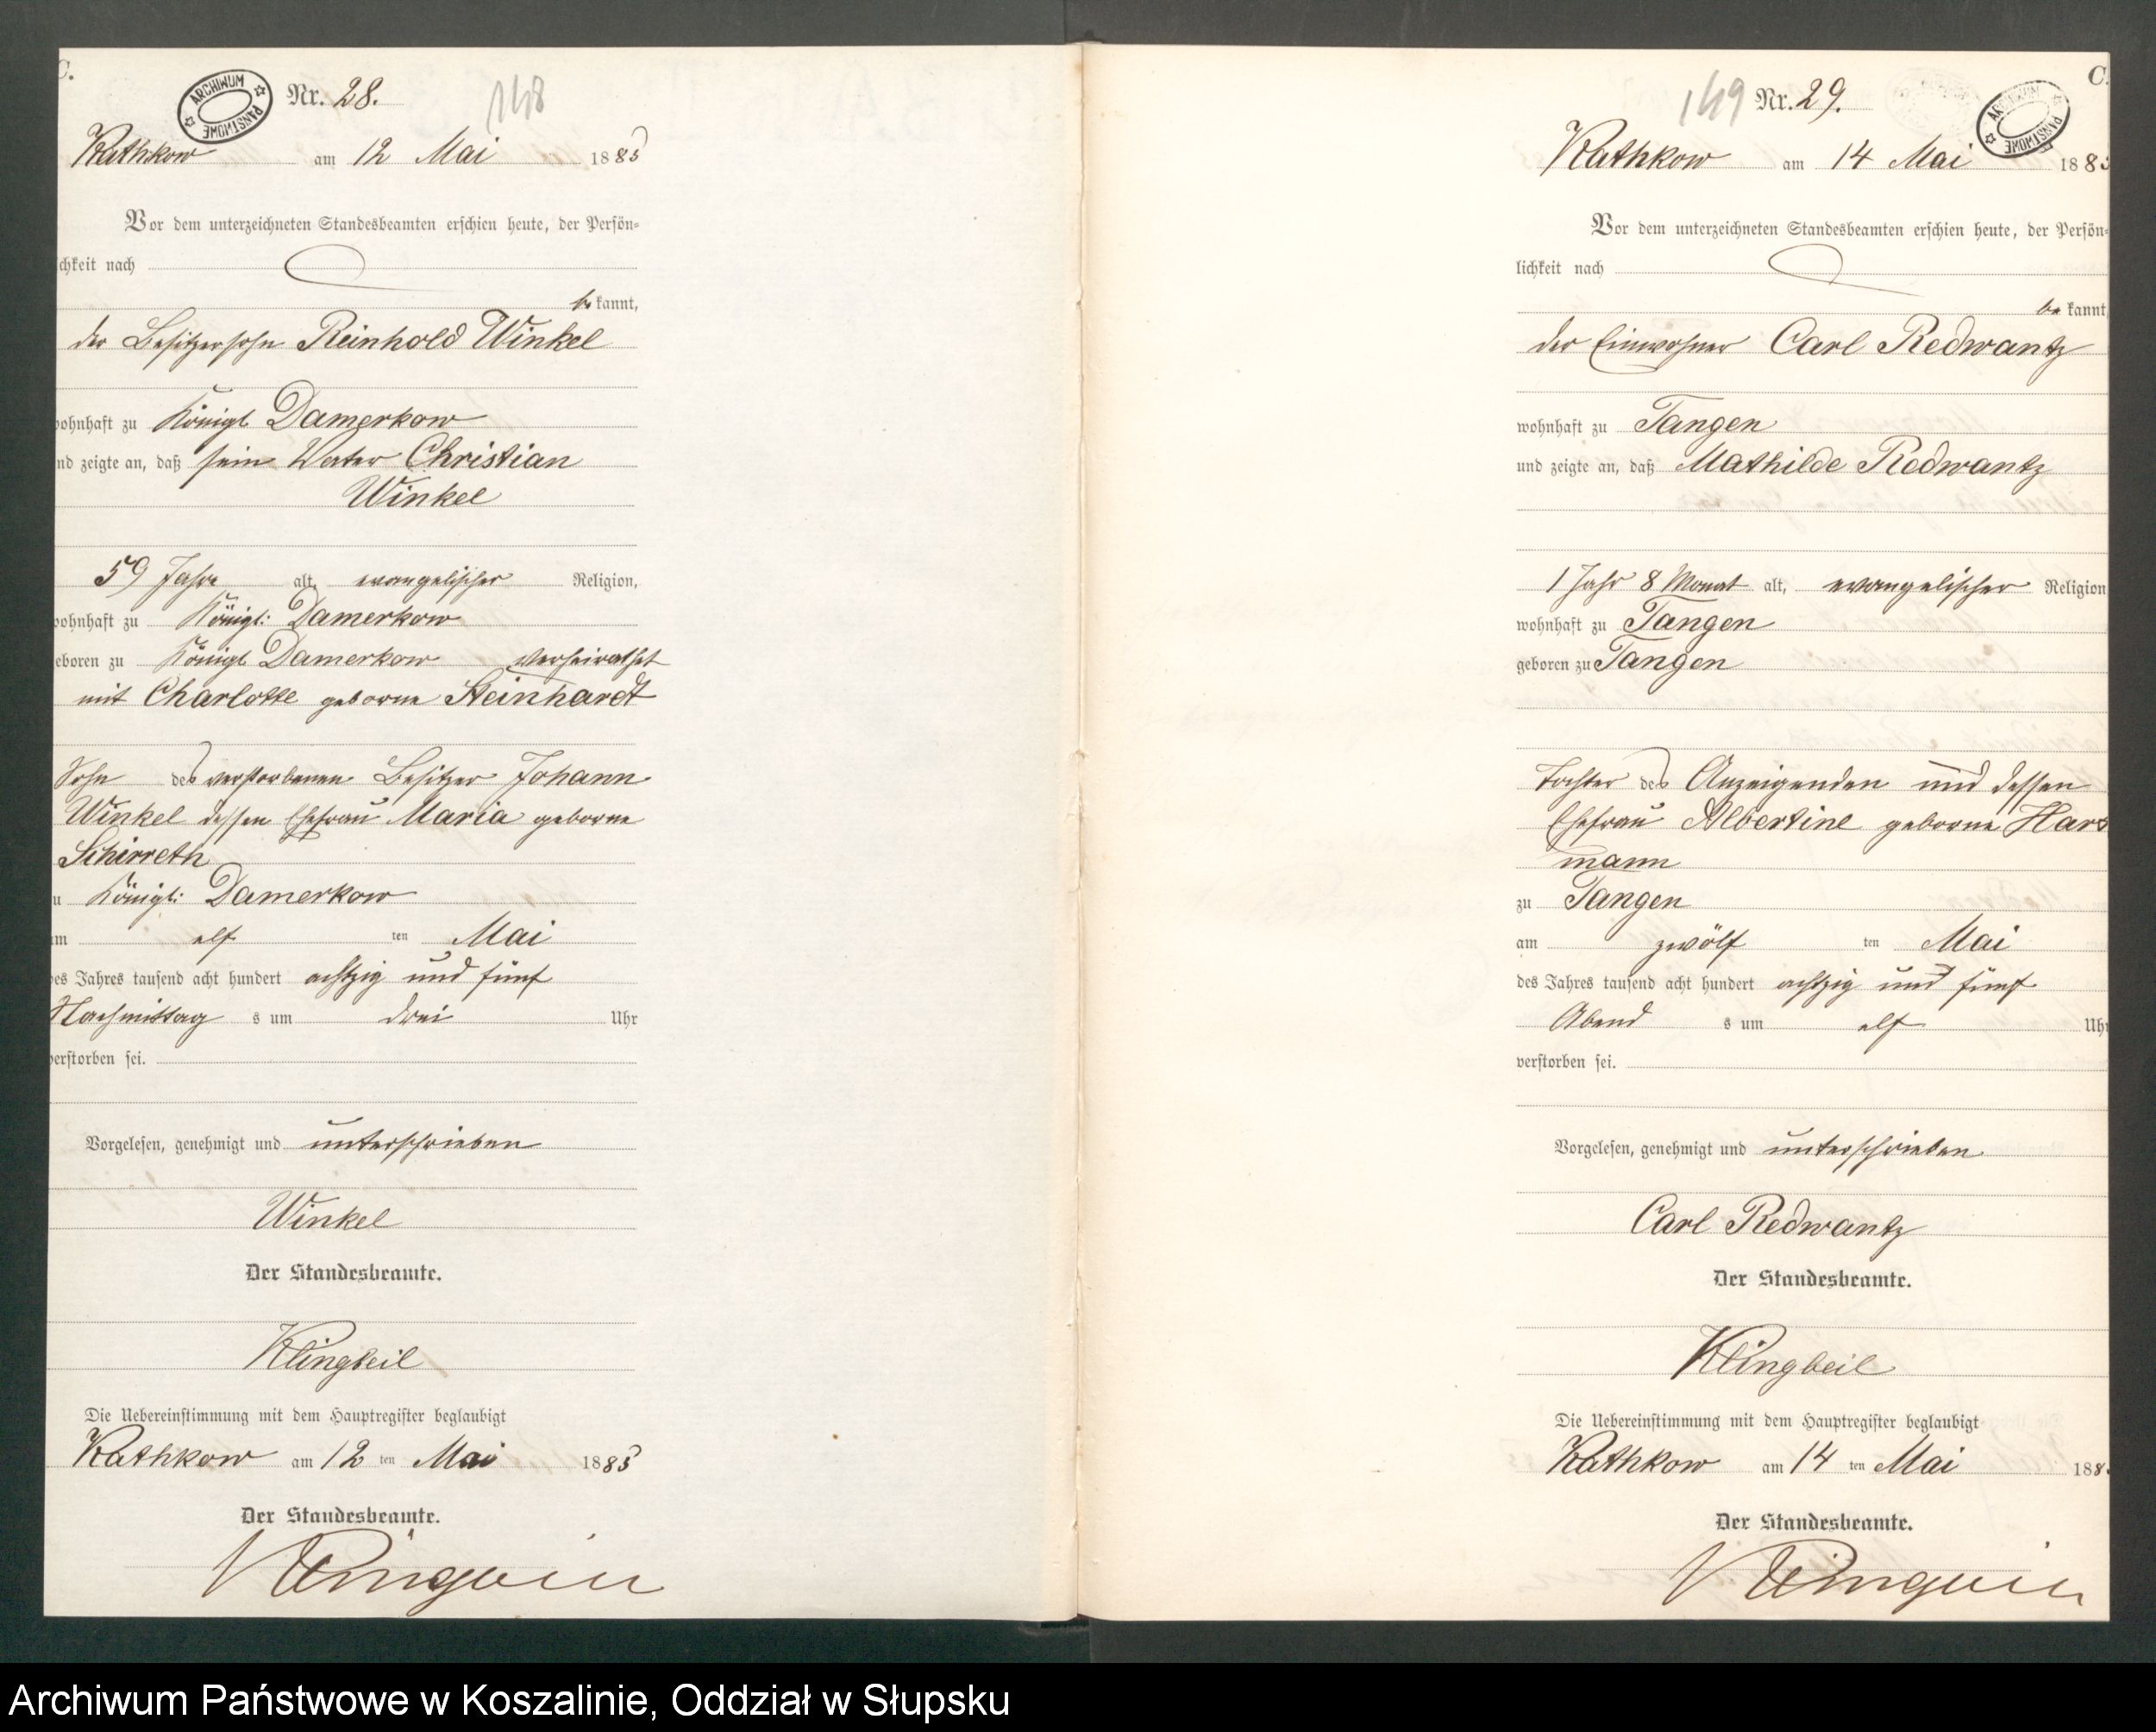 C.
ARCHIWUM PAŃSTWOWE
Nr. 28.
148
Rathkow am 12 Mai 1885
Vor dem unterzeichneten Standesbeamten erschien heute, der Persön-
lichkeit nach
be kannt,
der Besitzersohn Reinhold Winkel
wohnhaft zu Königl Damerkow
und zeigte an, daß sein Vater Christian
Winkel
59 Jahre alt, evangelischer Religion,
wohnhaft zu Königl: Damerkow
geboren zu Königl Damerkow verheirathet
mit Charlotte geborne Steinhardt
Sohn des verstorbenen Besitzer Johann
Winkel dessen Ehefrau Maria geborne
Schirreth
zu Königl: Damerkow
am elf ten Mai
des Jahres tausend acht hundert achtzig und fünf
Nachmittag s um drei Uhr
verstorben sei.
Vorgelesen, genehmigt und unterschrieben
Winkel
Der Standesbeamte.
Klingbeil
Die Uebereinstimmung mit dem Hauptregister beglaubigt
Rathkow am 12 ten Mai 1885
Der Standesbeamte.
Klingbeil
C.
149
Nr. 29.
ARCHIWUM PAŃSTWOWE
Rathkow am 14 Mai 1885
Vor dem unterzeichneten Standesbeamten erschien heute, der Persön-
lichkeit nach
be kannt,
der Einwohner Carl Redwantz
wohnhaft zu Tangen
und zeigte an, daß Mathilde Redwantz
1 Jahr 8 Monat alt, evangelischer Religion
wohnhaft zu Tangen
geboren zu Tangen
Tochter des Anzeigenden und dessen
Ehefrau Albertine geborne Har
mann
zu Tangen
am zwölf ten Mai
des Jahres tausend acht hundert achtzig und fünf
Abend s um elf Uhr
verstorben sei.
Vorgelesen, genehmigt und unterschrieben
Carl Redwantz
Der Standesbeamte.
Klingbeil
Die Uebereinstimmung mit dem Hauptregister beglaubigt
Rathkow am 14 ten Mai 188
Der Standesbeamte.
Klingbeil
Archiwum Państwowe w Koszalinie, Oddział w Słupsku